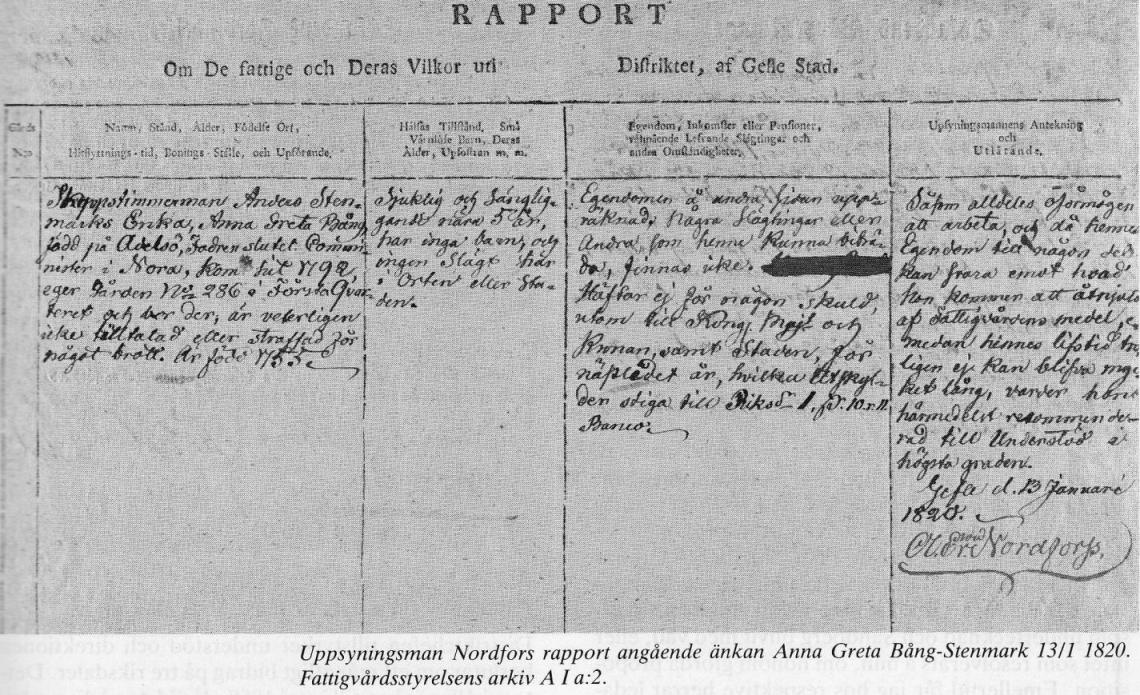 RAPPORT
Om De fattige och Deras Vilkor uti Distriktet, af Gefle Stad.
Gårds
No
Namn, Stånd, Ålder, Födelse Ort,
Hitflyttnings-tid, Bonings-Ställe, och Upförande.
Hälsas Tillstånd, Små
Värnlöse Barn, Deras
Ålder, Upfostran m. m.
Egendom, Inkomster eller Pensioner,
välmående Lefvande Slägtingar och
andra Omständigheter.
Upsyningsmannens Anteckning
och
Utlåtande.
Skeppstimmerman Anders Sten-
marks Enka, Anna Greta Bång
född på Adelsö, Fadren slutet Commi-
nister i Nora, kom hit 1792,
eger Gården No 286 i Första Qvar-
teret och bor der, är veterligen
icke tilltalad eller straffad för
något brott. Är född 1755.
Sjuklig och Sänglig-
gande nära 5 år,
har inga barn, och
ingen Slägt här
i Orten eller Sta-
den.
Egendomen å andra sidan upp-
räknad. Några Slägtingar eller
Andra, som henne kunna biträ-
da, finnas icke.
Häftar ej för någon skuld,
utom till Kongl. Majt och
Kronan, samt Staden, för
näpledet år, hvilka Utskyl-
der stiga till Riksd 1, 10 r
Banco.
Såsom alldeles oförmögen
att arbeta, och då hennes
Egendom till någon del
kan svara emot hvad
hon kommer att åtnjuta
af Fattigvårdens medel,
medan hennes lifstid tro-
ligen ej kan blifva myc-
ket lång, varder hon
härmedelst recommende-
rad till Understöd i
högsta graden.
Gefle d. 13 Januari
1820.
Nordforss.
Uppsyningsman Nordfors rapport angående änkan Anna Greta Bång-Stenmark 13/1 1820.
Fattigvårdsstyrelsens arkiv A I a:2.